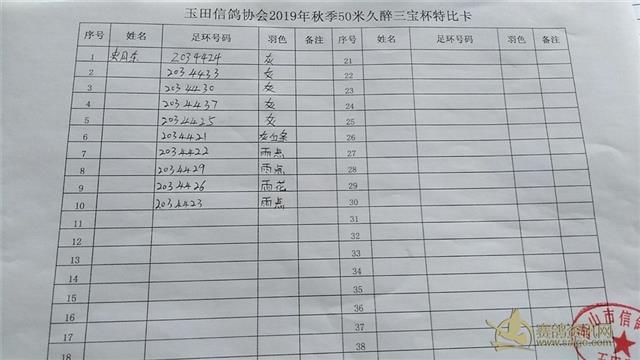 玉田信鸽协会2019年秋季50米久醉三宝杯特比卡
序号 姓名 足环号码 羽色 备注 序号 姓名 足环号码 羽色 备注
1 2034424 灰 21
2 2034433 灰 22
3 2034430 灰 23
4 2034437 灰 24
5 2034425 灰 25
6 2034421 26
7 2034422 雨点 27
8 2034429 雨点 28
9 2034426 雨花 29
10 2034423 雨点 30
11 31
12 32
13 33
14 34
15 35
16 36
17 37
18 38
山市信鸽
赛鸽资讯网